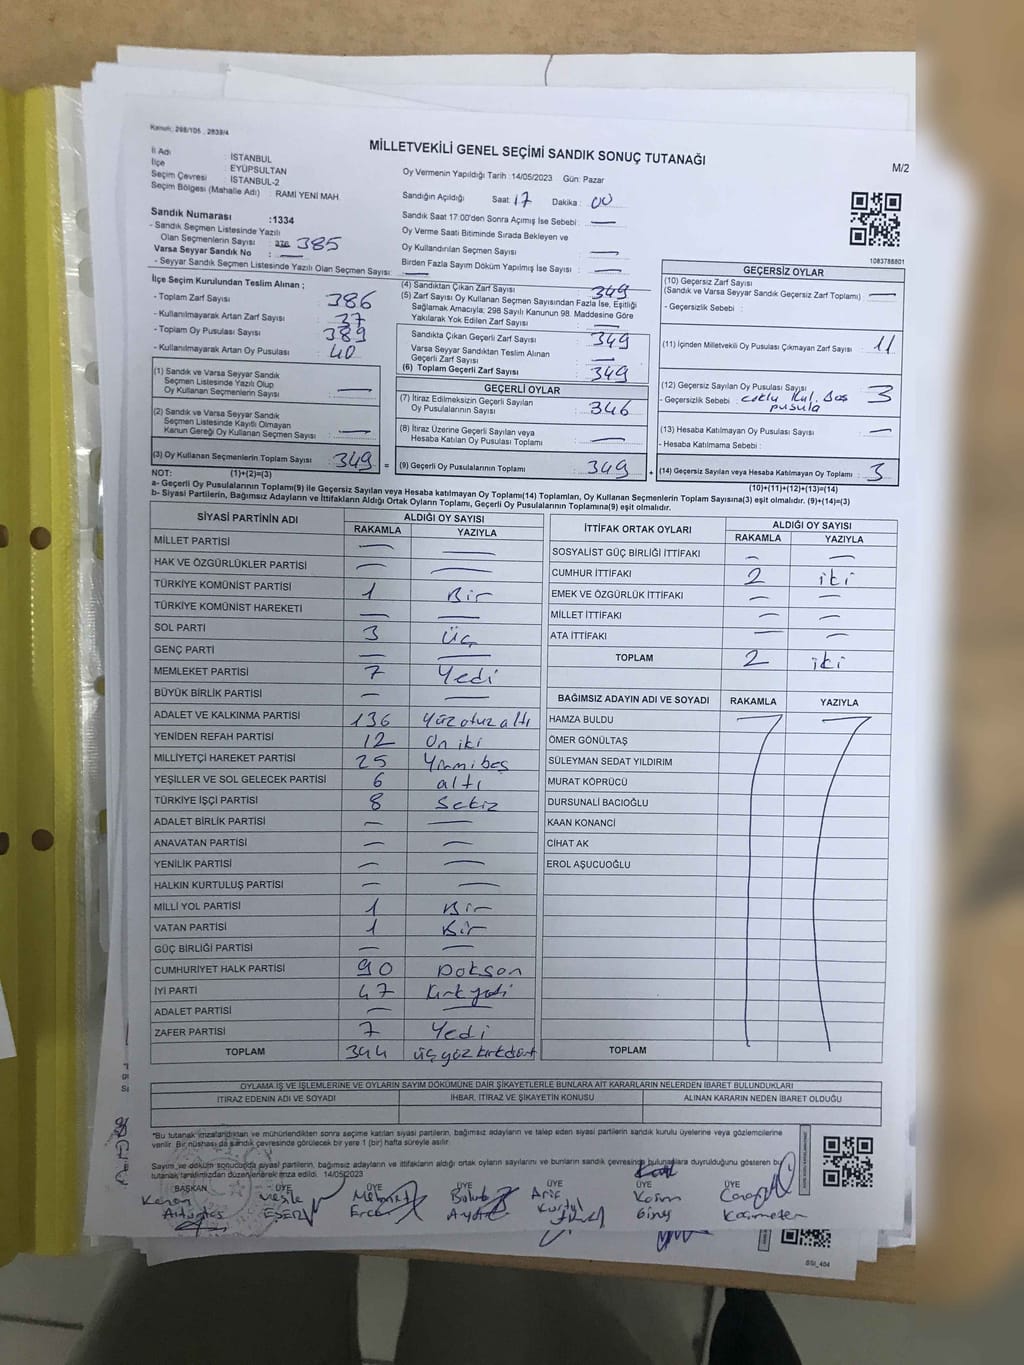 Kanun: 298/105 , 2839/4
MİLLETVEKİLİ GENEL SEÇİMİ SANDIK SONUÇ TUTANAĞI
M/2
İl Adı : İSTANBUL
İlçe : EYÜPSULTAN
Seçim Çevresi : İSTANBUL-2
Seçim Bölgesi (Mahalle Adı) : RAMİ YENİ MAH.
Oy Vermenin Yapıldığı Tarih : 14/05/2023 Gün: Pazar
Sandığın Açıldığı Saat: 17 Dakika : 00
Sandık Saat 17:00'den Sonra Açımış İse Sebebi : —
Oy Verme Saati Bitiminde Sırada Bekleyen ve
Oy Kullandırılan Seçmen Sayısı : —
Birden Fazla Sayım Döküm Yapılmış İse Sayısı : —
Sandık Numarası :1334
- Sandık Seçmen Listesinde Yazılı
Olan Seçmenlerin Sayısı : 376 385
Varsa Seyyar Sandık No : —
- Seyyar Sandık Seçmen Listesinde Yazılı Olan Seçmen Sayısı : —
1083788801
İlçe Seçim Kurulundan Teslim Alınan ;
- Toplam Zarf Sayısı : 386
- Kullanılmayarak Artan Zarf Sayısı : 37
- Toplam Oy Pusulası Sayısı : 389
- Kullanılmayarak Artan Oy Pusulası : 40
(1) Sandık ve Varsa Seyyar Sandık
Seçmen Listesinde Yazılı Olup
Oy Kullanan Seçmenlerin Sayısı : —
(2) Sandık ve Varsa Seyyar Sandık
Seçmen Listesinde Kayıtlı Olmayan
Kanun Gereği Oy Kullanan Seçmen Sayısı : —
(3) Oy Kullanan Seçmenlerin Toplam Sayısı : 349
(4) Sandıktan Çıkan Zarf Sayısı : 349
(5) Zarf Sayısı Oy Kullanan Seçmen Sayısından Fazla İse, Eşitliği
Sağlamak Amacıyla; 298 Sayılı Kanunun 98. Maddesine Göre
Yakılarak Yok Edilen Zarf Sayısı : —
Sandıkta Çıkan Geçerli Zarf Sayısı : 349
Varsa Seyyar Sandıktan Teslim Alınan
Geçerli Zarf Sayısı : —
(6) Toplam Geçerli Zarf Sayısı : 349
GEÇERLİ OYLAR
(7) İtiraz Edilmeksizin Geçerli Sayılan
Oy Pusulalarının Sayısı : 346
(8) İtiraz Üzerine Geçerli Sayılan veya
Hesaba Katılan Oy Pusulası Toplamı : —
= (9) Geçerli Oy Pusulalarının Toplamı : 349 +
GEÇERSİZ OYLAR
(10) Geçersiz Zarf Sayısı
(Sandık ve Varsa Seyyar Sandık Geçersiz Zarf Toplamı) : —
- Geçersizlik Sebebi :
(11) İçinden Milletvekili Oy Pusulası Çıkmayan Zarf Sayısı : 11
(12) Geçersiz Sayılan Oy Pusulası Sayısı : 3
- Geçersizlik Sebebi : Kul. Boş
pusula
(13) Hesaba Katılmayan Oy Pusulası Sayısı : —
- Hesaba Katılmama Sebebi :
(14) Geçersiz Sayılan veya Hesaba Katılmayan Oy Toplamı : 3
NOT: (1)+(2)=(3) (10)+(11)+(12)+(13)=(14)
a- Geçerli Oy Pusulalarının Toplamı(9) ile Geçersiz Sayılan veya Hesaba katılmayan Oy Toplamı(14) Toplamları, Oy Kullanan Seçmenlerin Toplam Sayısına(3) eşit olmalıdır. (9)+(14)=(3)
b- Siyasi Partilerin, Bağımsız Adayların ve İttifakların Aldığı Ortak Oyların Toplamı, Geçerli Oy Pusulalarının Toplamına(9) eşit olmalıdır.
SİYASİ PARTİNİN ADI ALDIĞI OY SAYISI
RAKAMLA YAZIYLA
MİLLET PARTİSİ — —
HAK VE ÖZGÜRLÜKLER PARTİSİ — —
TÜRKİYE KOMÜNİST PARTİSİ 1 Bir
TÜRKİYE KOMÜNİST HAREKETİ — —
SOL PARTİ 3 Üç
GENÇ PARTİ — —
MEMLEKET PARTİSİ 7 Yedi
BÜYÜK BİRLİK PARTİSİ — —
ADALET VE KALKINMA PARTİSİ 136 Yüz otuz altı
YENİDEN REFAH PARTİSİ 12 On iki
MİLLİYETÇİ HAREKET PARTİSİ 25 Yirmi beş
YEŞİLLER VE SOL GELECEK PARTİSİ 6 altı
TÜRKİYE İŞÇİ PARTİSİ 8 Sekiz
ADALET BİRLİK PARTİSİ — —
ANAVATAN PARTİSİ — —
YENİLİK PARTİSİ — —
HALKIN KURTULUŞ PARTİSİ — —
MİLLİ YOL PARTİSİ 1 Bir
VATAN PARTİSİ 1 Bir
GÜÇ BİRLİĞİ PARTİSİ — —
CUMHURİYET HALK PARTİSİ 90 Doksan
İYİ PARTİ 47 Kırk yedi
ADALET PARTİSİ — —
ZAFER PARTİSİ 7 Yedi
TOPLAM 344 üç yüz kırk dört
İTTİFAK ORTAK OYLARI ALDIĞI OY SAYISI
RAKAMLA YAZIYLA
SOSYALİST GÜÇ BİRLİĞİ İTTİFAKI — —
CUMHUR İTTİFAKI 2 iki
EMEK VE ÖZGÜRLÜK İTTİFAKI — —
MİLLET İTTİFAKI — —
ATA İTTİFAKI — —
TOPLAM 2 iki
BAĞIMSIZ ADAYIN ADI VE SOYADI RAKAMLA YAZIYLA
HAMZA BULDU
ÖMER GÖNÜLTAŞ
SÜLEYMAN SEDAT YILDIRIM
MURAT KÖPRÜCÜ
DURSUNALİ BACIOĞLU
KAAN KONANCİ
CİHAT AK
EROL AŞUCUOĞLU
TOPLAM
OYLAMA İŞ VE İŞLEMLERİNE VE OYLARIN SAYIM DÖKÜMÜNE DAİR ŞİKAYETLERLE BUNLARA AİT KARARLARIN NELERDEN İBARET BULUNDUKLARI
İTİRAZ EDENİN ADI VE SOYADI İHBAR, İTİRAZ VE ŞİKAYETİN KONUSU ALINAN KARARIN NEDEN İBARET OLDUĞU
*Bu tutanak imzalandıktan ve mühürlendikten sonra seçime katılan siyasi partilerin, bağımsız adayların ve talep eden siyasi partilerin sandık kurulu üyelerine veya gözlemcilerine
verilir. Bir nüshası da sandık çevresinde görülecek bir yere 1 (bir) hafta süreyle asılır.
Sayım ve döküm sonucunda siyasi partilerin, bağımsız adayların ve ittifakların aldığı ortak oyların sayılarını ve bunların sandık çevresinde bulunanlara duyrulduğunu gösteren bu
tutanak tarafımızdan düzenlenerek imza edildi. 14/05/2023
BAŞKAN ÜYE ÜYE ÜYE ÜYE ÜYE ÜYE
Kenan Vesile Mehmet Bulut Arif Kasım
ESER Ercan Aydın Güneş
SSİ_404